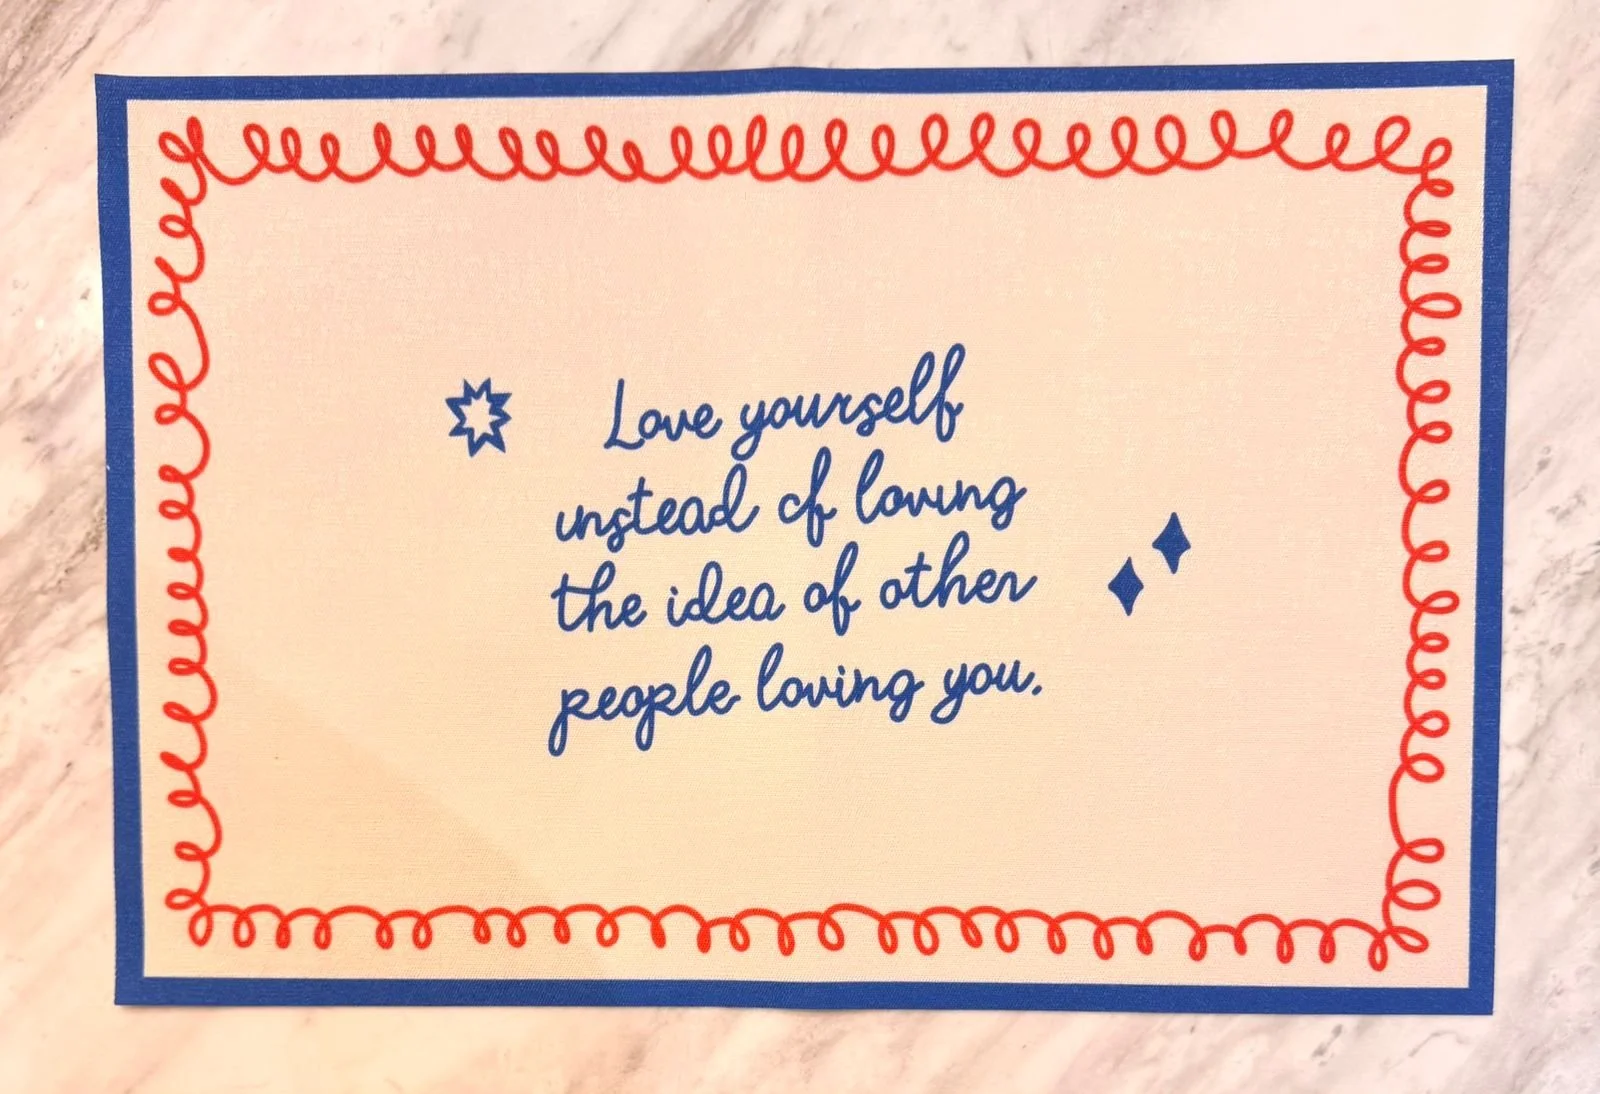 Love yourself
instead of loving
the idea of other
people loving you.